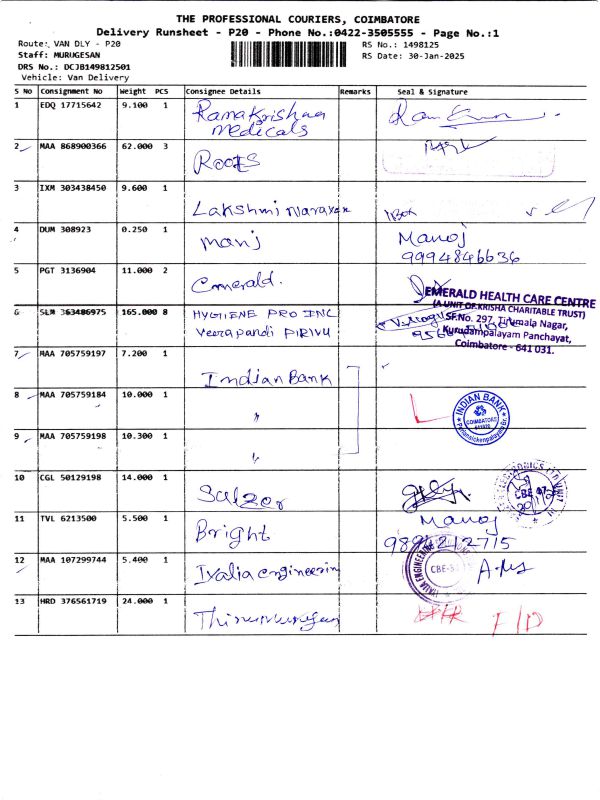 THE PROFESSIONAL COURIERS, COIMBATORE
Delivery Runsheet - P20 - Phone No.:0422-3505555 - Page No.:1
Route: VAN DLY - P20
RS No.: 1498125
Staff: MURUGESAN
RS Date: 30-Jan-2025
DRS No.: DCJB149812501
Vehicle: Van Delivery
S No Consignment No Weight PCS Consignee Details Remarks Seal & Signature
1 EDQ 17715642 9.100 1 Ramakrishna
medicals
2 MAA 868900366 62.000 3 Roots
3 IXM 303438450 9.600 1 Lakshmi Narayan
4 DUM 308923 0.250 1 Manj Manoj
9994846636
5 PGT 3136904 11.000 2 Emerald.
EMERALD HEALTH CARE CENTRE
(A UNIT OF KRISHA CHARITABLE TRUST)
SF.No. 297, Tirumala Nagar,
Kurudampalayam Panchayat,
Coimbatore - 641 031.
6 SLM 363486975 165.000 8 HYGIENE PRO INC
Veerapandi PIRIVU
7 MAA 705759197 7.200 1 Indian Bank
8 MAA 705759184 10.000 1 "
INDIAN BANK
COIMBATORE
9 MAA 705759198 10.300 1 "
10 CGL 50129198 14.000 1 Salzer
11 TVL 6213500 5.500 1 Bright Manoj
9894212715
12 MAA 107299744 5.400 1 Iyalia engineering
13 HRD 376561719 24.000 1 Thirumurugan F/D